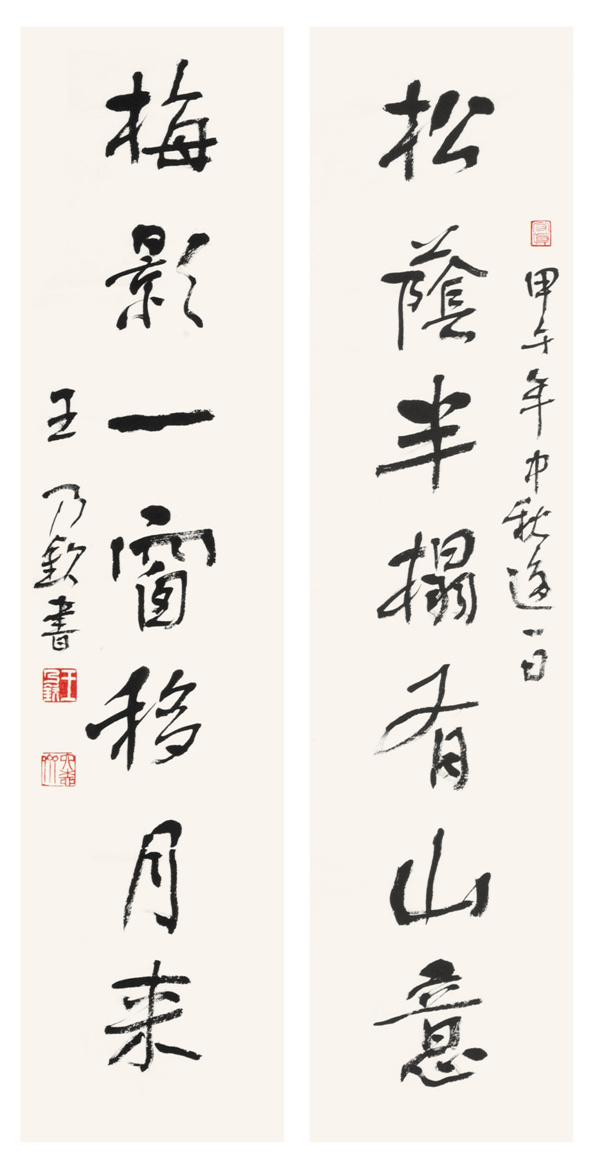 甲午年中秋後一日
松蔭半榻有山意
梅影一窗移月来
王乃欽書
王乃欽